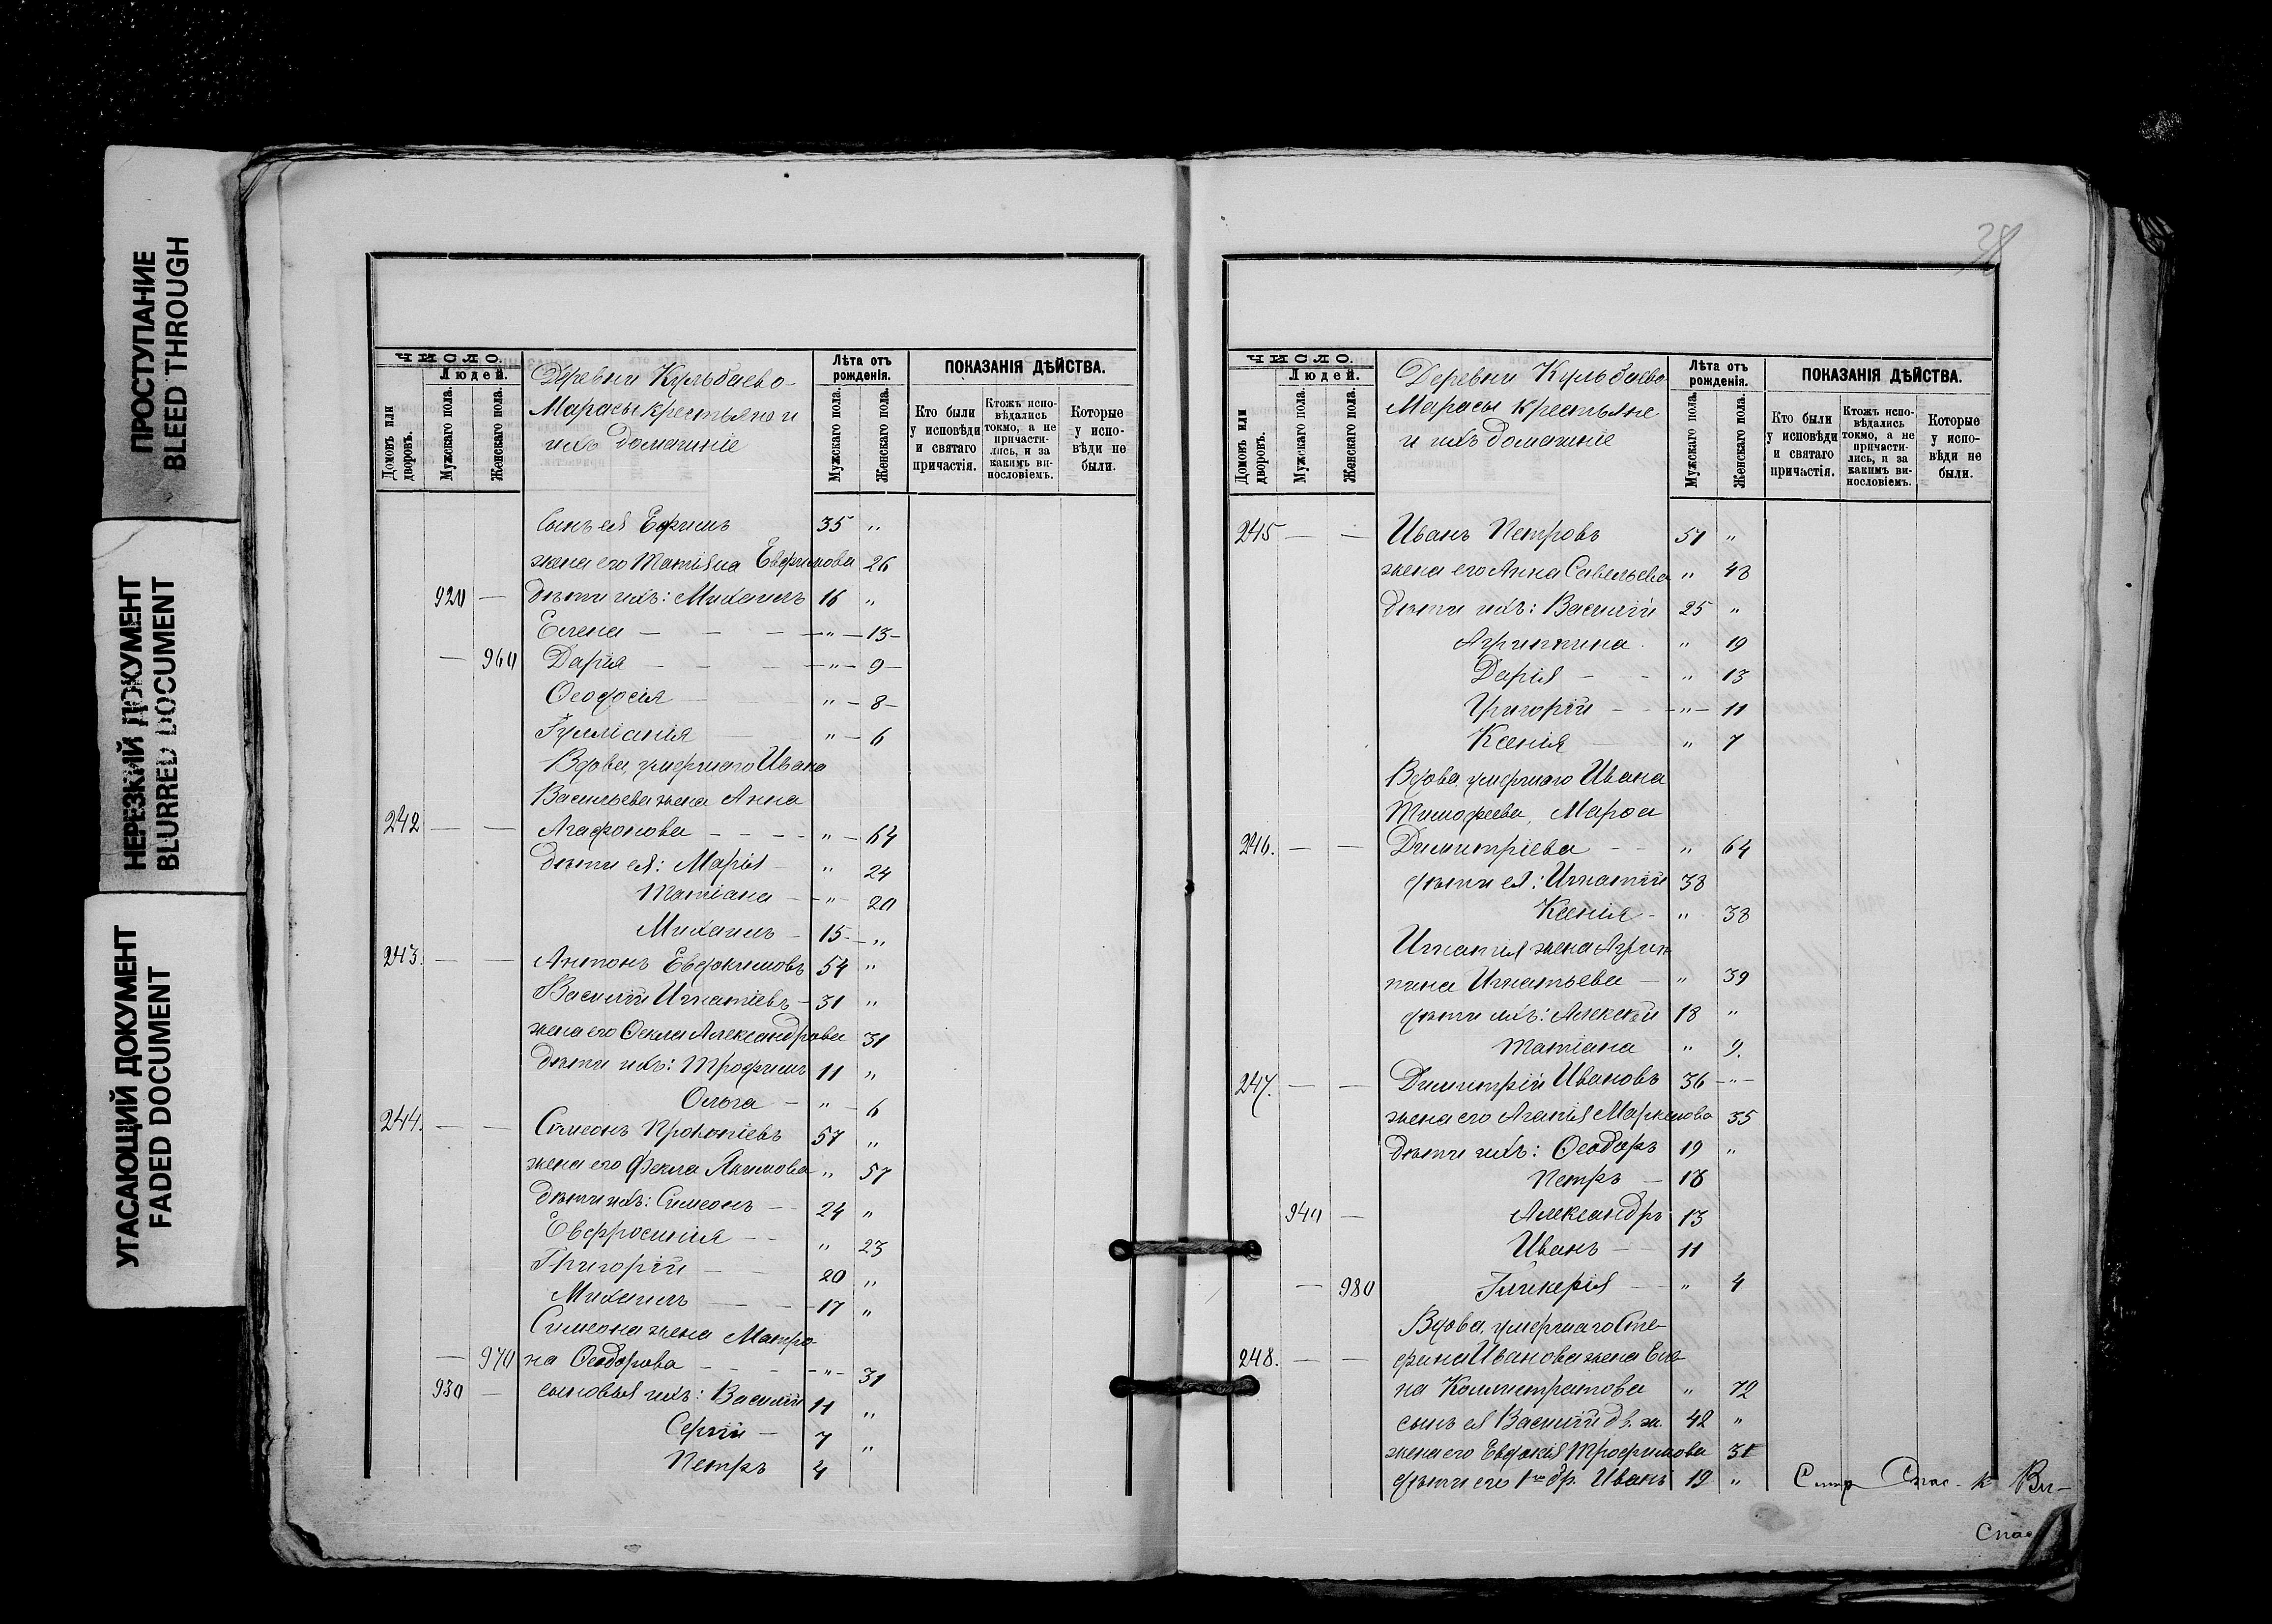 ПРОСТУПАНИЕ
BLEED THROUGH
НЕРЕЗКИЙ ДОКУМЕНТ
BLURRED DOCUMENT
УГАСАЮЩИЙ ДОКУМЕНТ
FADED DOCUMENT
ЧИСЛО.
Людей.
Домовъ или дворовъ.
Мужскаго пола.
Женскаго пола.
Деревни Кульбаево-
Марасы крестьяне и
ихъ домашніе
Лѣта отъ рожденія.
Мужскаго пола.
Женскаго пола.
ПОКАЗАНІЯ ДѢЙСТВА.
Кто были у исповѣди и святаго причастія.
Ктожъ исповѣдались токмо, а не причастились, и за какимъ винословіемъ.
Которые у исповѣди не были.
сынъ ея Ефимъ 35 "
жена его Матiѳна Евфимова 26
920 — дѣти ихъ: Михаилъ 16 "
Елена — — — " — 13 —
— 960 Дарія — — — " — 9 —
Ѳеодосія — " — 8 —
Іуліанія — " — 6
Вдова, умершаго Ивана
Васильева жена Анна
242 — — Агафонова — — — " — 64
дѣти ея: Марія — " 24
Татіана — " — 20
Михаилъ — 15 — "
243. — — Антонъ Евдокимовъ 54 "
Василій Игнатіевъ — 31 "
жена его Ѳекла Александрова 31
дѣти ихъ: Трофимъ 11 "
Ольга — " — 6
244. — — Симеонъ Прокопіевъ 57 "
жена его Фекла Акимова " 57
дѣти ихъ: Симеонъ — 24 "
Евфросинія — — " 23
Григорій — — 20 "
Михаилъ — — 17 "
Симеона жена Матро-
— 970 на Ѳеодорова — — — " — 31
930 — сыновья ихъ: Василій 11 "
Сергій — 7 "
Петръ 4
38
ЧИСЛО.
Людей.
Домовъ или дворовъ.
Мужскаго пола.
Женскаго пола.
Деревни Кульбаево
Марасы крестьяне
и ихъ домашніе
Лѣта отъ рожденія.
Мужскаго пола.
Женскаго пола.
ПОКАЗАНІЯ ДѢЙСТВА.
Кто были у исповѣди и святаго причастія.
Ктожъ исповѣдались токмо, а не причастились, и за какимъ винословіемъ.
Которые у исповѣди не были.
245 — — Иванъ Петровъ 51 "
жена его Анна Савельева " 48
дѣти ихъ: Василій 25 "
Агриппина " 19
Дарія — — " 13
Григорій — — " — 11
Ксенія — " 7
Вдова, умершаго Ивана
Тимофеева, Марѳа
246. — — Димитріева — — " 64
дѣти ея: Игнатій 38
Ксенія — " 38
Игнатія жена Агрип
пина Игнатьева — " 39
дѣти ихъ: Алексѣй 18 "
Татіана " 9.
247. — — Димитрій Ивановъ 36 — " —
жена его Агапія Маркелова 35
дѣти ихъ: Ѳеодоръ 19 "
Петръ — 18
940 — Александръ 13
Иванъ — — 11
— 980 Гликерія — " 4
Вдова, умершаго Сте-
248. — — фана Иванова жена Еле-
на Каллистратова " 72
сынъ ея Василій дв. ж. 42 "
жена его Евдокія Трофимова 31
дѣти его 1-го бр. Иванъ 19 "